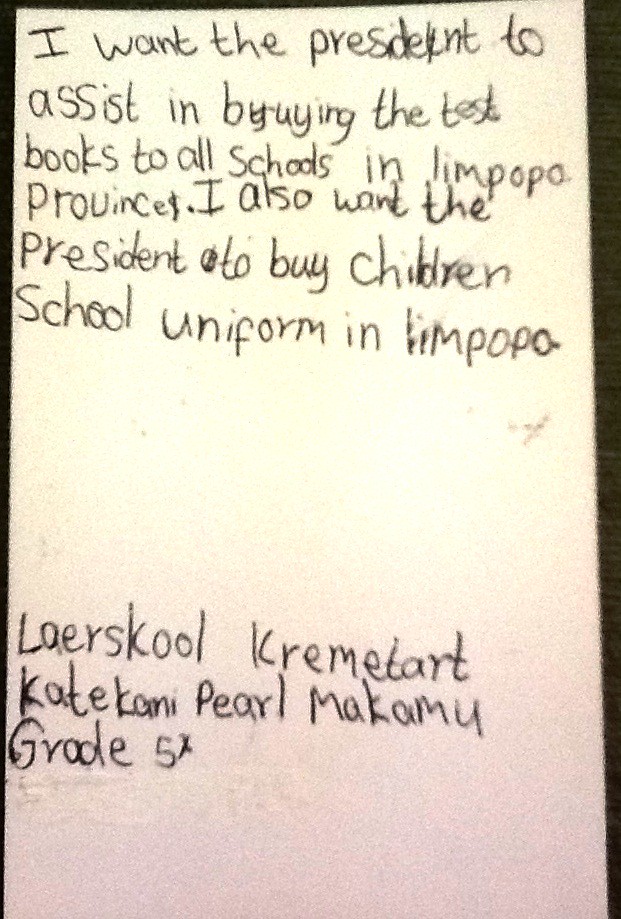 I want the president to
assist in buying the test
books to all schools in limpopo
Provinces. I also want the
President to buy children
School uniform in limpopo
Laerskool Kremetart
Katekani Pearl Makamu
Grade 5x